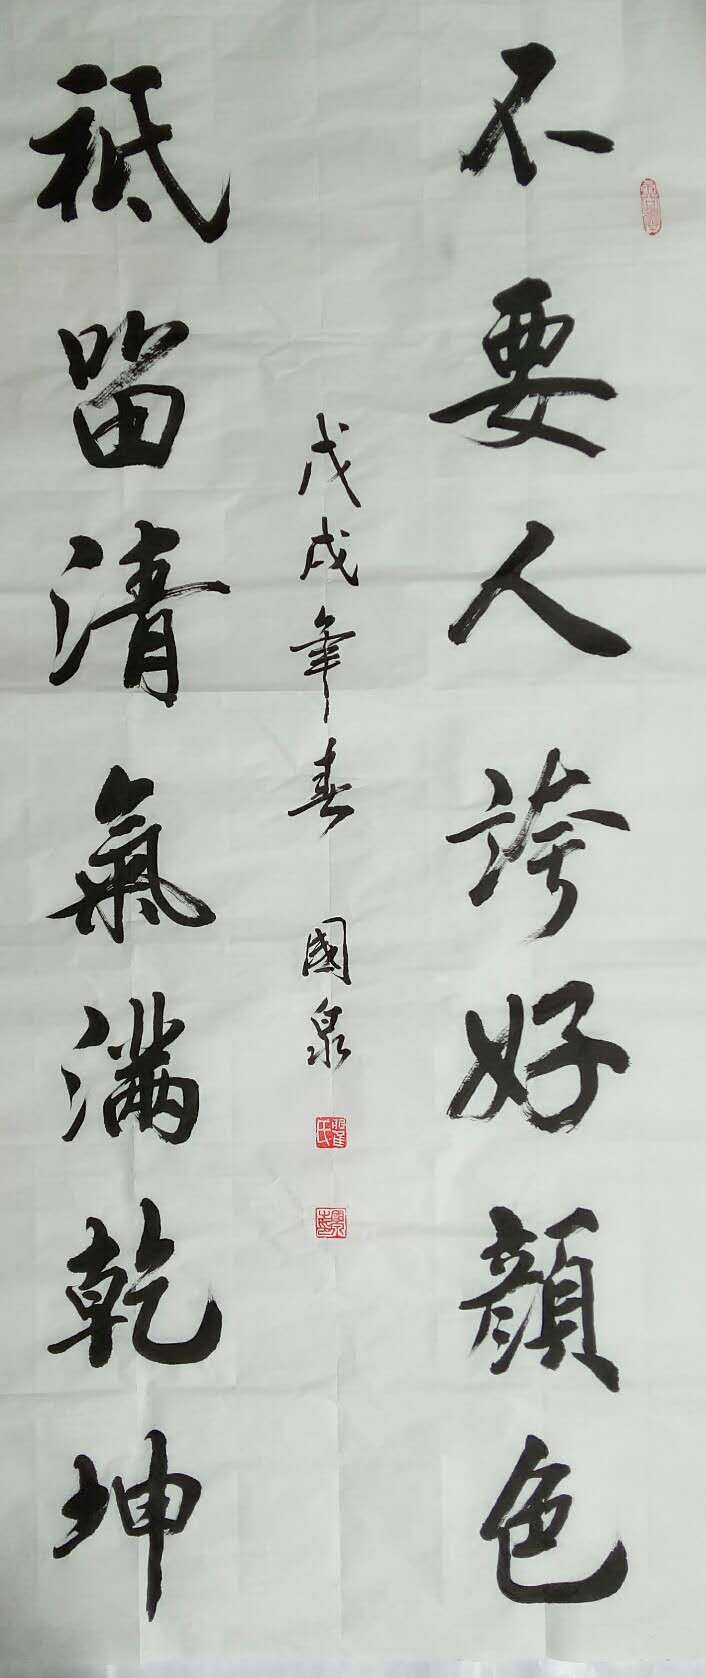 不要人誇好顔色
祗留清氣滿乾坤
戊戌年春 國泉